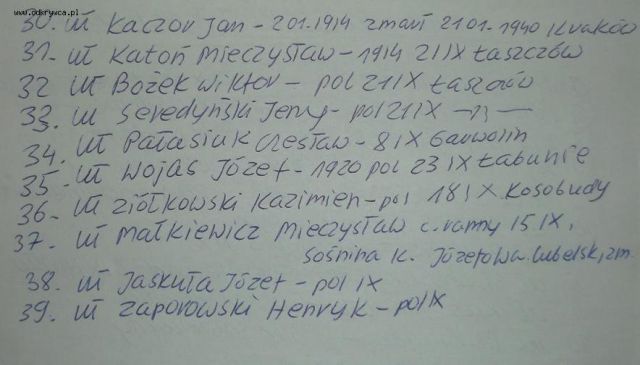 www.odkrywca.pl
30. uł Kaczor Jan - 201.1914 zmarł 2101-1940 Kraków
31. uł Katoń Mieczysław - 1914 21IX Łaszczów
32 uł Bożek Wiktor - pol 21IX Łaszczów
33. uł Seredyński Jerzy - pol 21IX -11-
34. uł Pałasiuk Czesław - 8IX Garwolin
35. uł Wojas Józef - 1920 pol 23IX Łabunie
36- uł Ziółkowski Kazimierz - pol 18IX Kosobudy
37. uł Małkiewicz Mieczysław c. ranny 15IX,
Sośnina k. Józefowa Lubelsk, zm.
38. uł Jaskuła Józef - pol IX
39. uł Zaporowski Henryk - pol IX